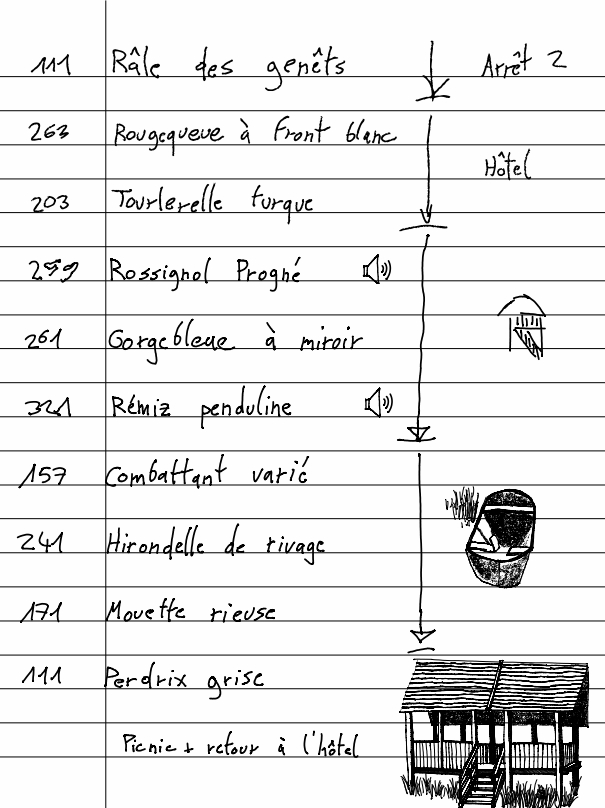 111 Râle des genêts Arrêt 2
263 Rougequeue à Front blanc
Hôtel
203 Tourterelle turque
259 Rossignol Progné
261 Gorgebleue à miroir
321 Rémiz penduline
157 Combattant varié
241 Hirondelle de rivage
171 Mouette rieuse
111 Perdrix grise
Picnic + retour à l'hôtel